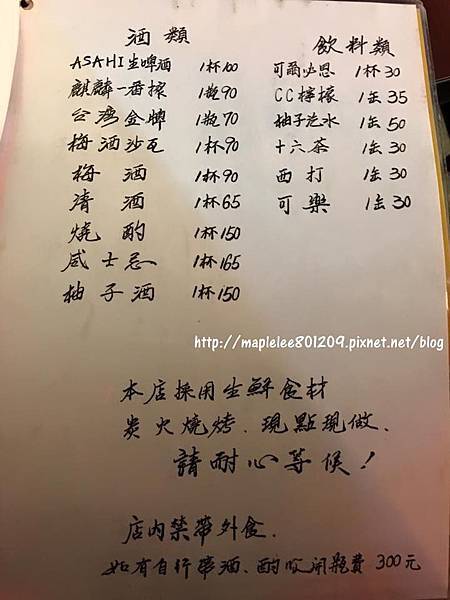 酒類
ASAHI生啤酒 1杯100
麒麟一番搾 1瓶90
台灣金牌 1瓶70
梅酒沙瓦 1杯90
梅酒 1杯90
清酒 1杯65
燒酌 1杯150
威士忌 1杯165
柚子酒 1杯150
飲料類
可爾必思 1杯30
CC檸檬 1缶35
柚子汽水 1缶50
十六茶 1缶30
西打 1缶30
可樂 1缶30
http://maplelee801209.pixnet.net/blog
本店採用生鮮食材
炭火燒烤.現點現做、
請耐心等候！
店內禁帶外食.
如有自行帶酒、酌收開瓶費300元